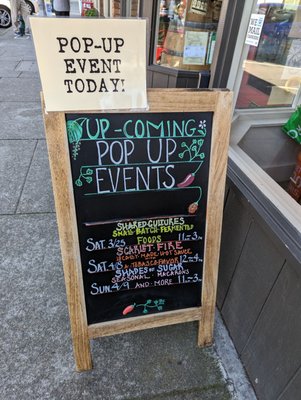 POP-UP
EVENT
TODAY!
UP-COMING
POP UP
EVENTS
SHARED CULTURES
SMALL BATCH FERMENTED
FOODS
SAT. 3/25 11-3
SCARLET FIRE
HOT SAUCE
SAT. 4/8 12-4
SHAPES OF SUGAR
SEASONAL MACARONS
SUN. 4/9 AND MORE 11-3
WE
MAIL